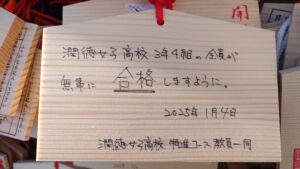 潤徳女子高校 3年4組の全員が
無事に 合格 しますように。
2025年1月4日
潤徳女子高校 特進コース教員一同
開